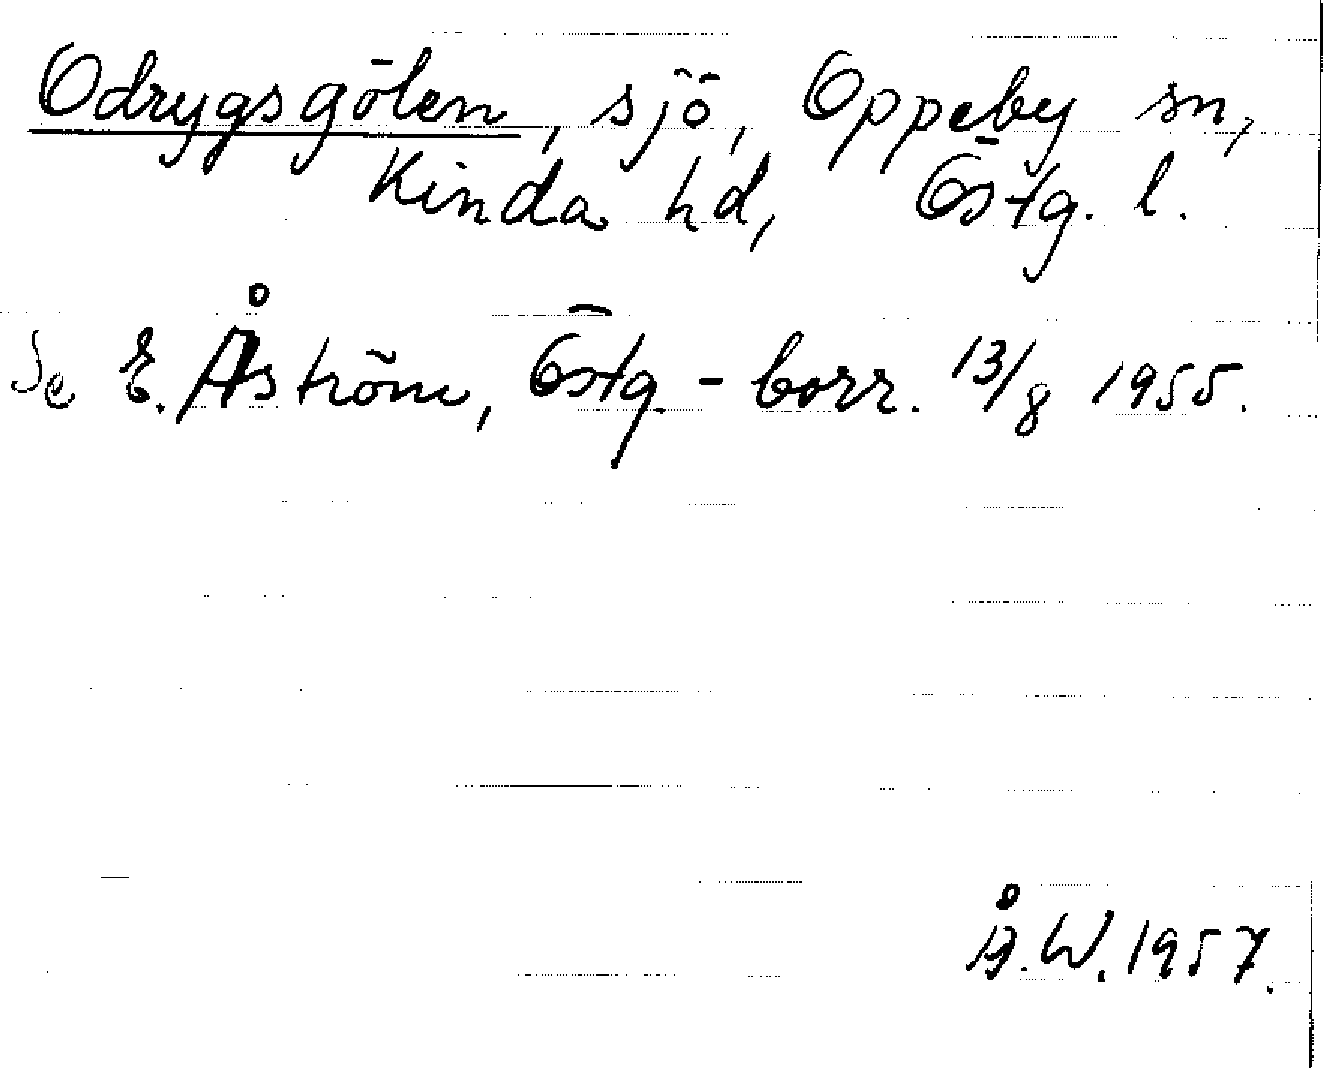 Odrygsgölen, sjö, Oppeby sn,
Kinda hd, Östg. l.
Se E. Åström, Östg-corr. 13/8 1955.
Å.W. 1957.